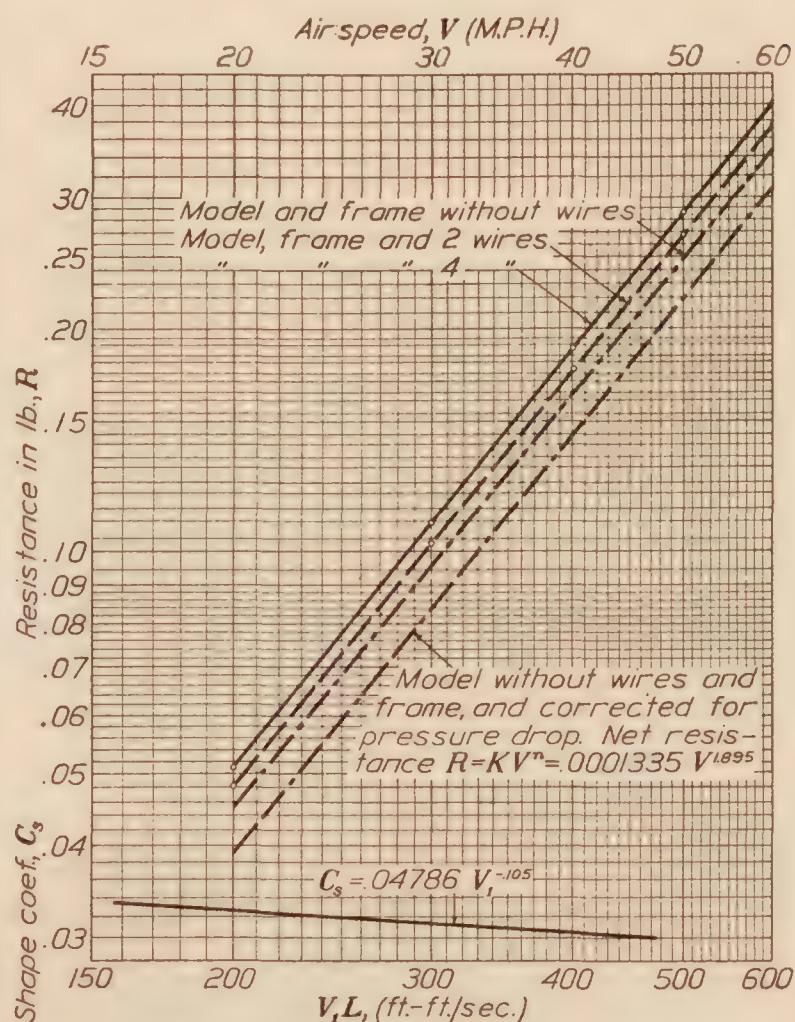 Air speed, V (M.P.H.)
15 20 30 40 50 60
.40
.30
.25
.20
.15
.10
.09
.08
.07
.06
.05
.04
.03
Resistance in lb., R
Shape coef., Cₛ
Model and frame without wires
Model, frame and 2 wires
" " " 4 "
Model without wires and
frame, and corrected for
pressure drop. Net resis-
tance R=KVⁿ=.0001335 V¹·⁸⁹⁵
Cₛ=.04786 V₁⁻·¹⁰⁵
150 200 300 400 500 600
V₁L, (ft.-ft./sec.)